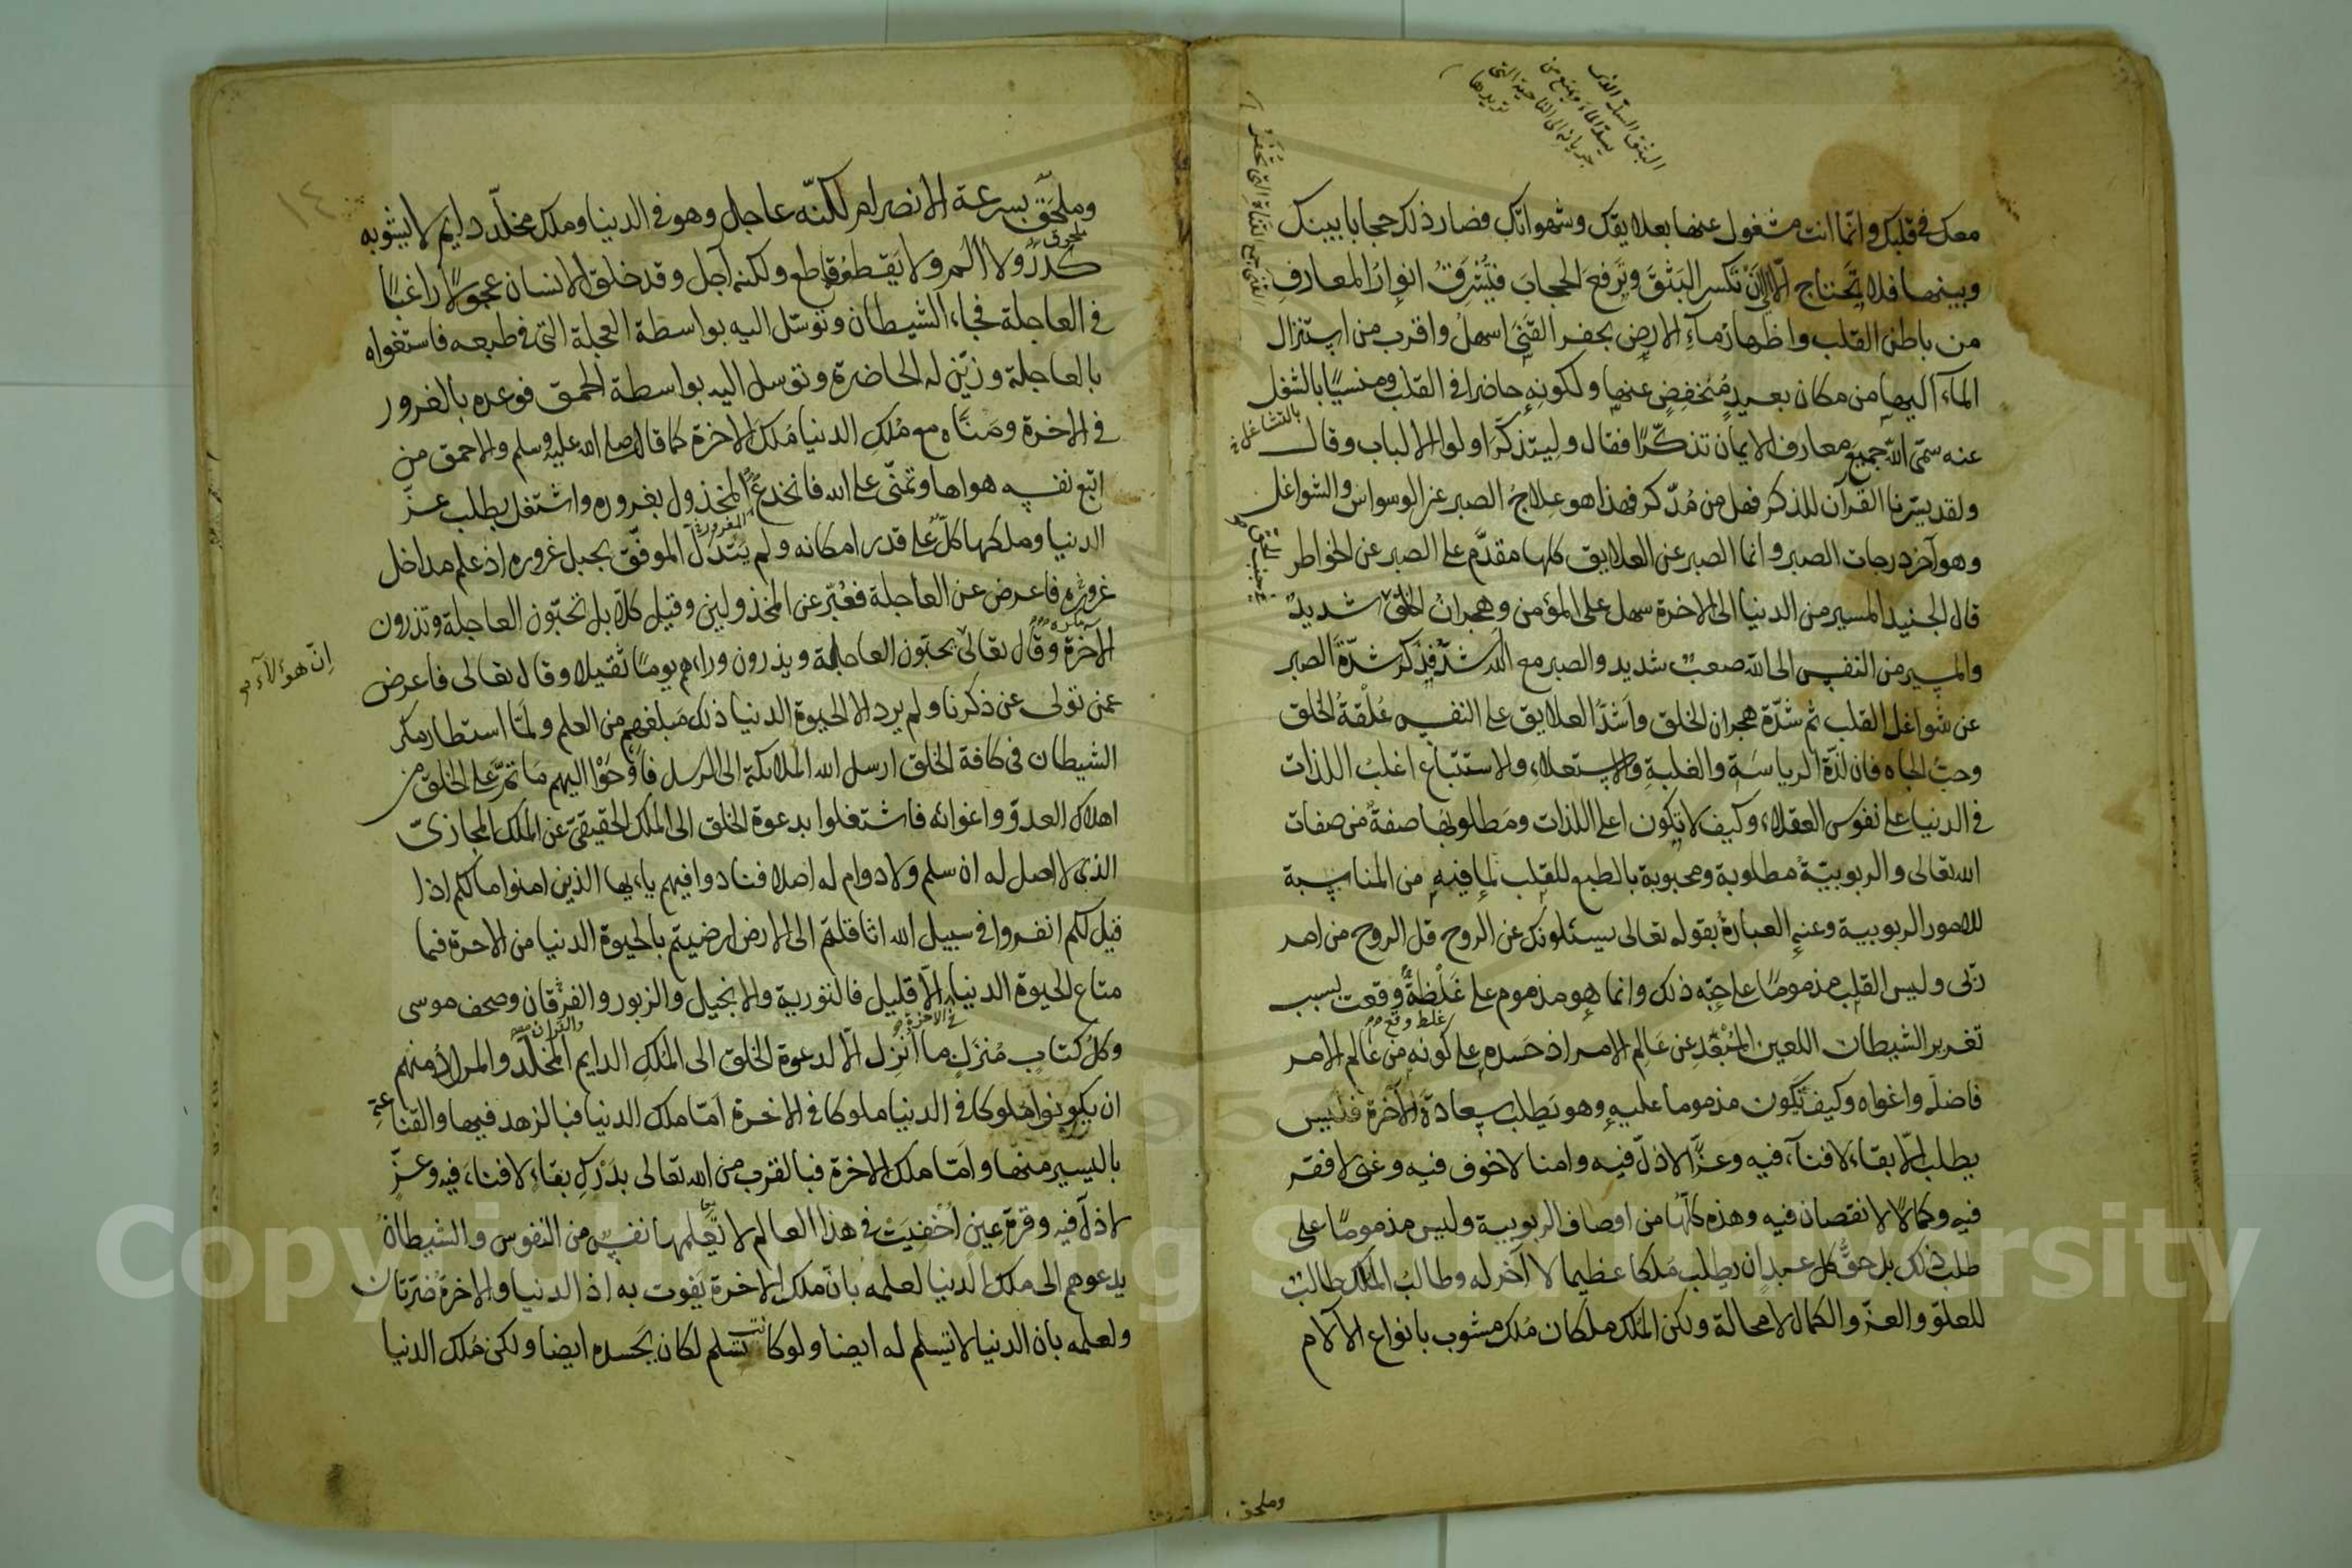 معك في قلبك وانّما انت مشغول عنها بعلايقك وشهواتك فصار ذلك حجابا بينك
وبينها فلا تحتاج الّا الى اَنْ تكسر البَثقَ وتَرفعَ الحجابَ فيُشْرِقُ انوارُ المعارفِ
من باطن القلب واظهارُ ماءِ الارض بحفر القَنَى اسهلُ واقرب من استنزال
الماء اليها من مكان بعيدٍ مُنْخفِضٍ عنها ولكونِهِ حاضرا في القلب ومنسيًا بالشغل
عنه سمّى الله جميعَ معارف الايمان تذكّرًا فقال وليتذكّرَ اولوا الالباب وقال
ولقد يسّرنا القرآن للذكر فهل من مُدّكر فهذا هو عِلاجُ الصبر عن الوسواس والشواغل
وهو آخر درجات الصبر وانما الصبر عن العلايق كلها مقدَّم على الصبر عن الخواطر
قال الجنيد المسير من الدنيا الى الاخرة سهل على المؤمن وهجرانُ الخلق شديدٌ
والمسير من النفس الى الله صعبٌ شديد والصبر مع الله اشدّ فذكر شدّةَ الصبر
عن شواغل القلب ثم شدّة هجران الخلق واَشدُّ العلايق على النفس عُلْقةُ الخلق
وحبُّ الجاه فان لذّة الرياسَةِ والغلبةِ والاستعلاءِ والاستتباع اغلبُ اللذات
في الدنيا على نفوس العقلاء وكيف لا تكون اعلى اللذات ومَطلوبُها صفةٌ من صفات
الله تعالى والربوبيّةُ مطلوبة ومحبوبة بالطبع للقلب لما فيه من المناسبة
للامور الربوبية وعنه العبارةُ بقوله تعالى يسئلونك عن الروح قل الروح من امر
ربى وليس القلب مذمومًا على حبّه ذلك وانما هو مذموم على غَلْطةٍ وقعت بسبب
تغرير الشيطان اللعين المُبْعَدِ عن عَالَمِ الامر اذ حَسده على كونه من عَالَم الامر
فاضلّه واغواه وكيف تكون مذموما عليه وهو يَطلب سعادةَ الآخرة فليس
يطلب الّا بقاءً لا فناءَ فيه وعزًّا لا ذلّ فيه وامنا لا خوف فيه وغنى لا فقر
فيه وكمالًا لا نقصان فيه وهذه كلُّها من اوصاف الربوبية وليس مذمومًا على
طلب ذلك بل حقُّ كل عبدٍ ان يطلب مُلكا عظيما لا آخر له وطالبُ الملك طالبٌ
للعلوّ والعزّ والكمال لا محالة ولكن المُلك ملكان مُلك مشوب بانواع الآلام
البثق السدّ الذى
يسدّ الماء ويمنع من
جريانه الى الناحية التى
تريدها
بالتشاغل
وملحق
وملحَق بسرعة الانصرام لكنّه عاجل وهو في الدنيا وملك مخلّد دايم لا يشوبه
كدرٌ ولا الم ولا يَقطعُه قاطع ولكنه آجل وقد خلق الانسان عجولًا راغبًا
في العاجلة فجاء الشيطان وتوسّل اليه بواسطة العجلة التى في طبعه فاستغواه
بالعاجلة وزيّن له الحاضرة وتوسل اليه بواسطة الحمق فوعده بالغرور
في الاخرة ومَنّاه مع مُلكِ الدنيا مُلكَ الاخرة كما قال صلى الله عليه وسلم والاحمق من
اتبع نفسه هواها وتمنّى على الله فانخدع المخذول بغروره واشتغل بطلب عزّ
المغرور
الدنيا وملكها كلّ على قدر امكانه ولم يَتدَلَّ الموفّق بحبل غروره اذ علم مداخل
غروره فاعرض عن العاجلة فعُبّر عن المخذولين وقيل كلّا بل تحبّون العاجلة وتذرون
الآخرة وقال تعالى يحبّون العاجلة ويذرون وراءهم يومًا ثقيلا وقال تعالى فاعرض
اِنّ هؤلآء
عمن تولى عن ذكرنا ولم يرد الا الحيوة الدنيا ذلك مَبلغهم من العلم ولَمّا استطار مكر
الشيطان في كافة الخلق ارسل الله الملائكة الى الرسل فاَوْحَوْا اليهم مَا تمّ على الخلق من
اهلاك العدوّ واغوائه فاشتغلوا بدعوة الخلق الى المُلك الحقيقىّ عن المُلك المجازىّ
الذى لا اصل له ان سلم ولا دوام له اصلا فنادوا فيهم يايها الذين امنوا مالكم اذا
قيل لكم انفروا في سبيل الله اثاقلتم الى الارض ارضيتم بالحيوة الدنيا من الاخرة فما
متاع الحيوة الدنيا الّا قليل فالتورية والانجيل والزبور والفرقان وصحف موسى
في الاخرة
والقران
وكلُّ كتابٍ مُنزَلٍ ما اُنزِلَ الّا لدعوة الخلق الى المُلكِ الدايم المخلّد والمراد منهم
ان يكونوا مُلوكا في الدنيا ملوكا في الاخرة اَمّا ملك الدنيا فبالزهد فيها والقناعةِ
باليسير منها واَمّا ملك الاخرة فبالقرب من الله تعالى بدَرْكِ بقاءٍ لا فناءَ فيه وعزّ
لا ذلّ فيه وقرةِ عينٍ اُخْفِيَتْ في هذا العالم لا تَعلمها نفسٌ من النفوس والشيطانُ
يدعوهم الى ملك الدنيا لعلمه بانّ ملك الاخرة يَفوت به اذ الدنيا والاخرةُ ضرّتان
ولعلمه بان الدنيا لا تسلم له ايضا ولو كانت تسلم لكان يَحسده ايضا ولكن مُلك الدنيا
١٤
Copyright © King Saud University